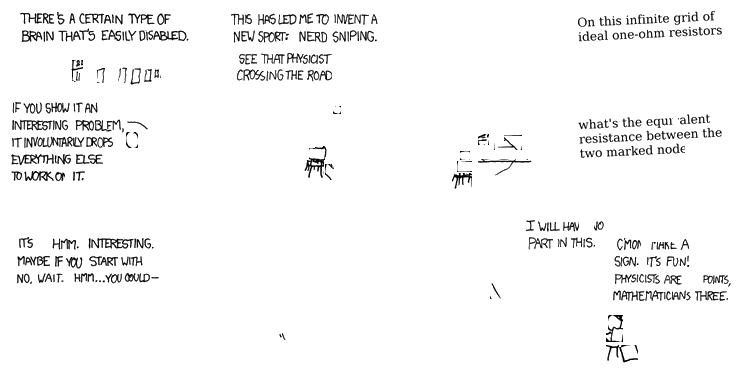 THERE'S A CERTAIN TYPE OF
BRAIN THAT'S EASILY DISABLED.
IF YOU SHOW IT AN
INTERESTING PROBLEM,
IT INVOLUNTARILY DROPS
EVERYTHING ELSE
TO WORK ON IT.
THIS HAS LED ME TO INVENT A
NEW SPORT: NERD SNIPING.
SEE THAT PHYSICIST
CROSSING THE ROAD
On this infinite grid of
ideal one-ohm resistors
what's the equivalent
resistance between the
two marked node
IT'S HMM. INTERESTING.
MAYBE IF YOU START WITH
NO, WAIT. HMM...YOU COULD—
I WILL HAV NO
PART IN THIS.
C'MON MAKE A
SIGN. IT'S FUN!
PHYSICISTS ARE POINTS,
MATHEMATICIANS THREE.